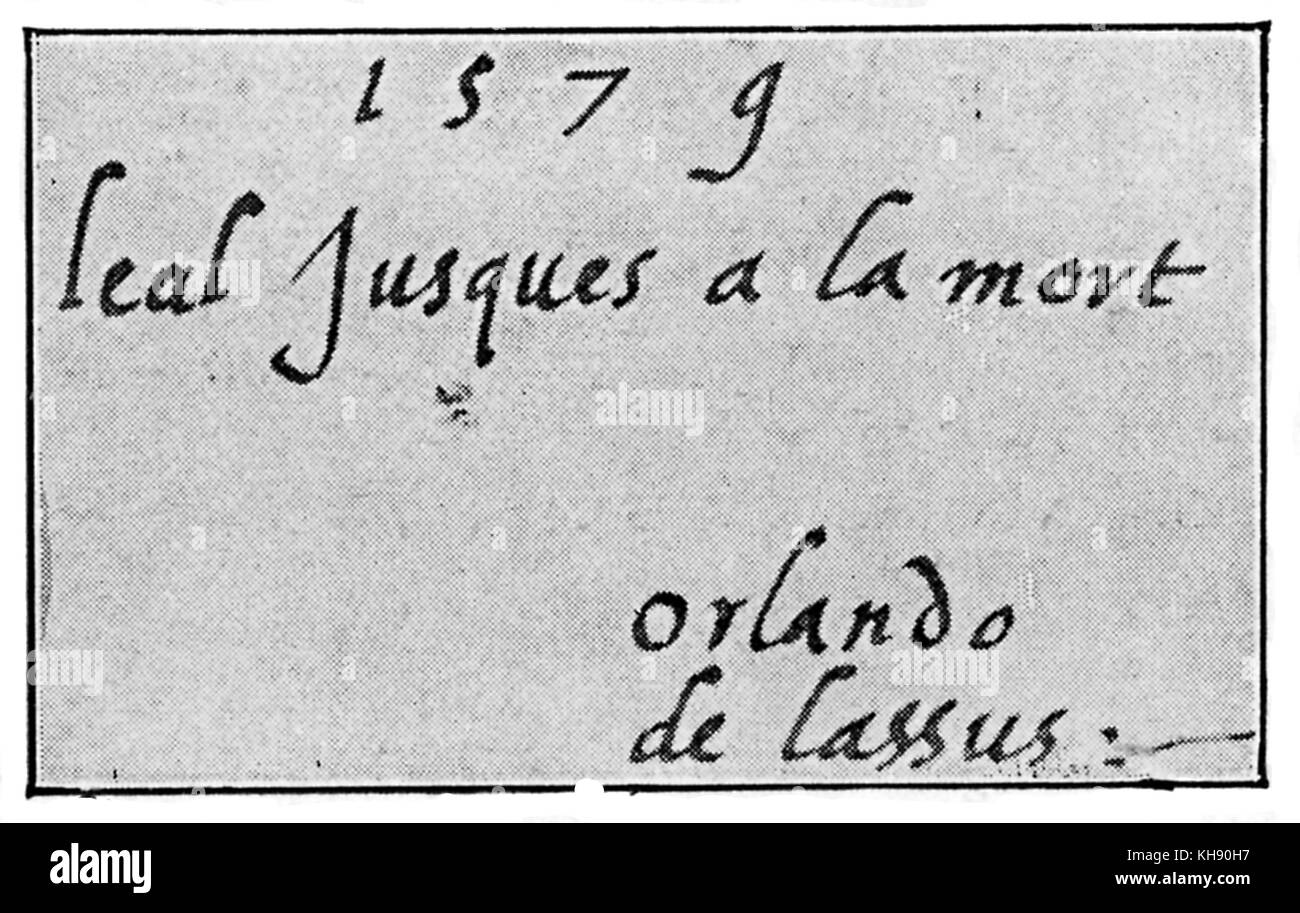 1579
leal Jusques a la mort
orlando
de lassus :
alamy
a
a
a
a
a
alamy
Image ID: KH90H7
www.alamy.com